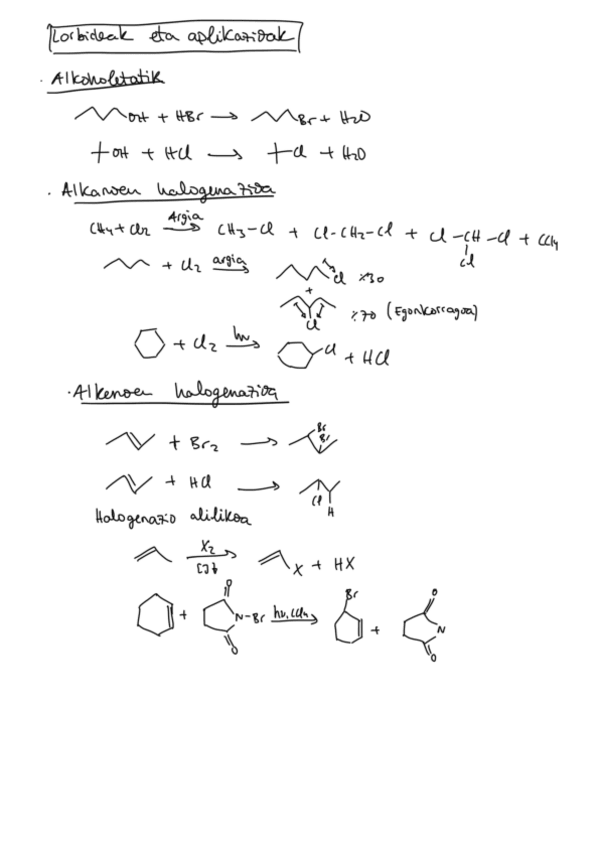 Lorbideak eta aplikazioak
· Alkoholetatik
OH + HBr → Br + H2O
OH + HCl → Cl + H2O
· Alkanoen halogenazioa
CH4 + Cl2 Argia → CH3-Cl + Cl-CH2-Cl + Cl-CH-Cl + CCl4
Cl
+ Cl2 argia → Cl %30
+
Cl %70 (Egonkorragoa)
+ Cl2 hν → Cl + HCl
· Alkenoen halogenazioa
+ Br2 → Br Br
+ HCl → Cl H
Halogenazio alilikoa
X2 → X + HX
+ O N-Br O hν, CCl4 → Br + O N O